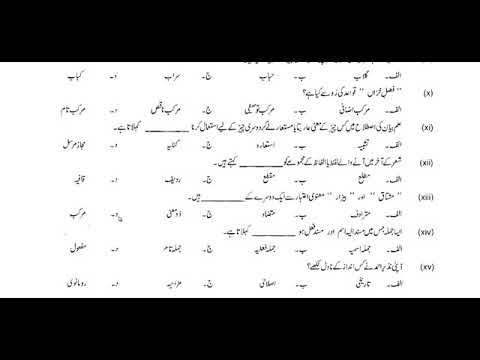 الف۔ گلاب ب۔ حباب ج۔ سراب د۔ کباب
(x) "فصلِ خزاں" قواعد کی رُو سے کیا ہے؟
الف۔ مرکب اضافی ب۔ مرکب توصیفی ج۔ مرکب ناقص د۔ مرکب تام
(xi) علم بیان کی اصطلاح میں کسی چیز کے معنی عاریتاً یا مستعار لے کر دوسری چیز کے لیے استعمال کرنا ________ کہلاتا ہے۔
الف۔ تشبیہ ب۔ استعارہ ج۔ کنایہ د۔ مجاز مرسل
(xii) شعر کے آخر میں آنے والے لفظ یا الفاظ کے مجموعے کو ________ کہتے ہیں۔
الف۔ مطلع ب۔ مقطع ج۔ ردیف د۔ قافیہ
(xiii) "مشتاق" اور "بیزار" معنوی اعتبار سے ایک دوسرے کے ________ ہیں۔
الف۔ مترادف ب۔ متضاد ج۔ ذومعنی د۔ مرکب
(xiv) ایسا جملہ جس میں مسند الیہ اسم اور مسند فعل ہو ________ کہلاتا ہے۔
الف۔ جملہ اسمیہ ب۔ جملہ فعلیہ ج۔ جملہ تام د۔ مفعول
(xv) ڈپٹی نذیر احمد نے کس انداز کے ناول لکھے؟
الف۔ تاریخی ب۔ اصلاحی ج۔ مزاحیہ د۔ رومانوی